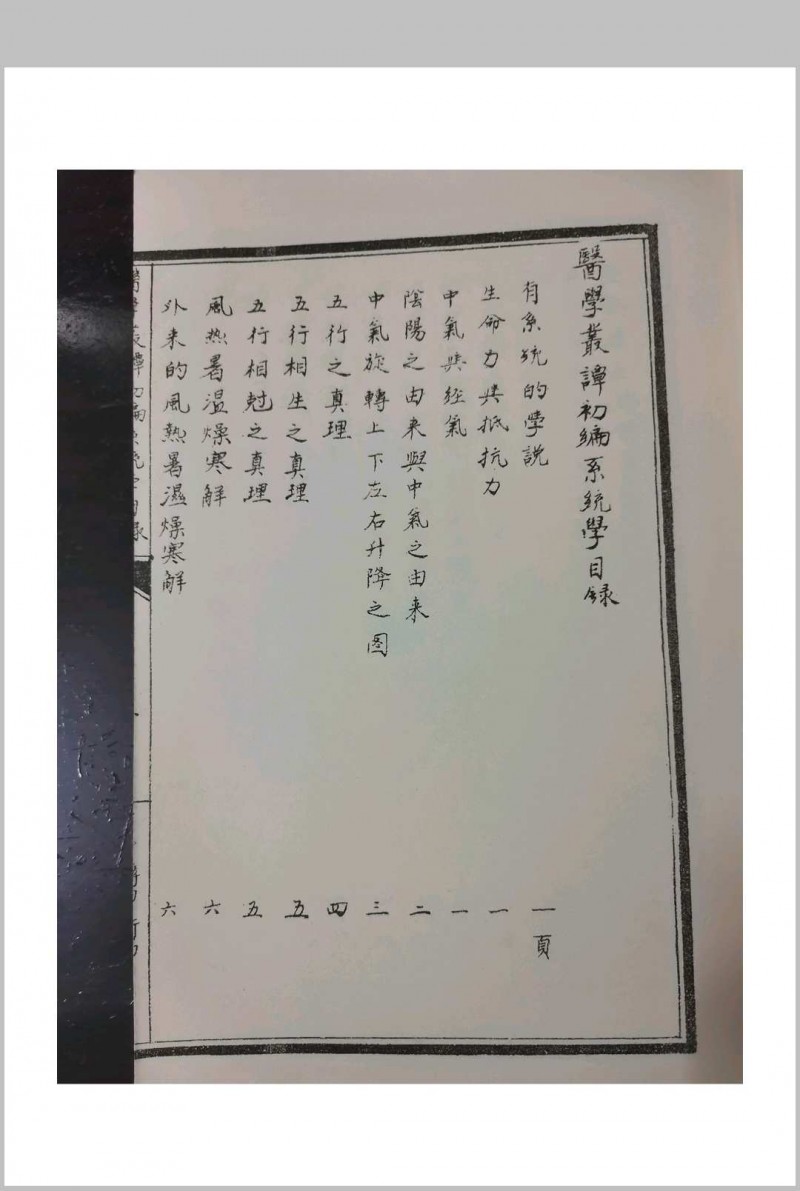 醫學叢譚初編系統學目録
有系統的学説 一頁
生命力与抵抗力 一
中氣与经氣 一
陰陽之由来與中氣之由来 二
中氣旋轉上下左右升降之图 三
五行之真理 四
五行相生之真理 五
五行相尅之真理 五
風热暑温燥寒解 六
外来的風熱暑濕燥寒解 六